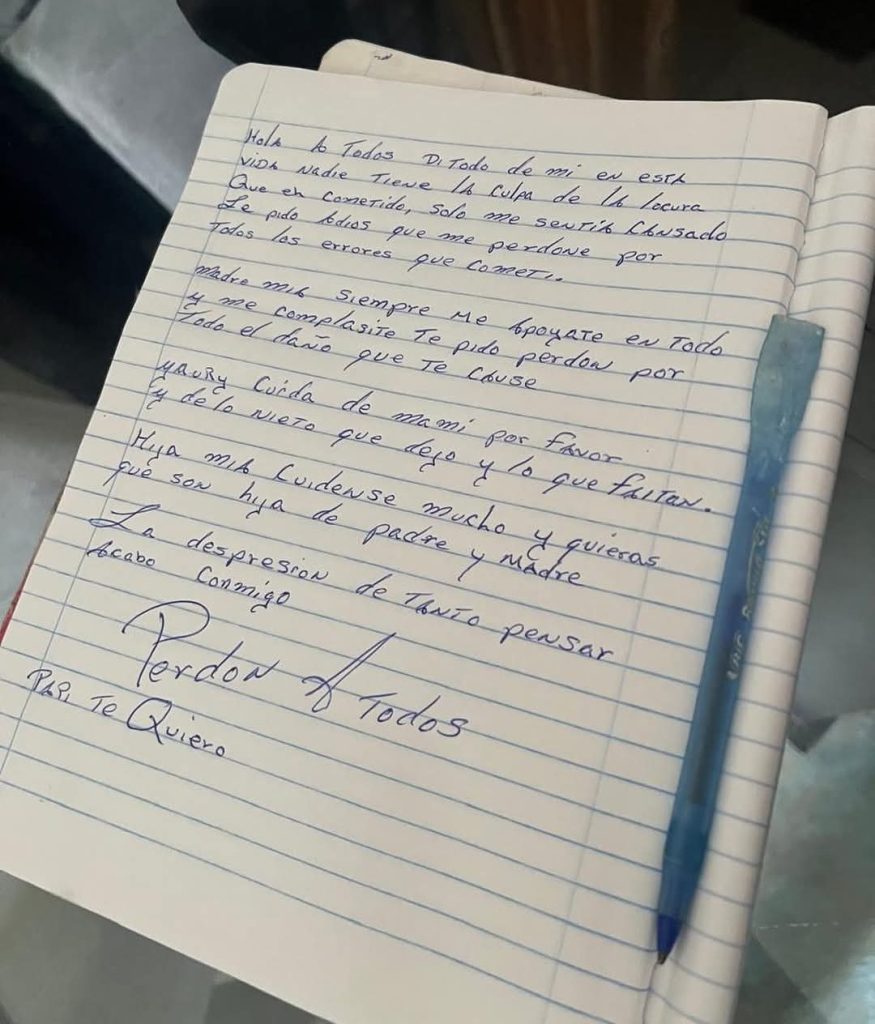 Hola A Todos Di Todo de mi en esta
vida Nadie Tiene la culpa de la locura
Que eh cometido, solo me sentia cansado
Le pido Adios que me perdone por
Todos los errores que cometi.
Madre mia siempre me Apoyate en Todo
y me complasite Te pido perdon por
Todo el daño que Te cause
yaury Cuida de mami por favor
y de lo Nieto que dejo y lo que faltan.
Hija mia Cuidense mucho y quieras
que son hija de padre y Madre
La despresion de Tanto pensar
Acabo Conmigo
Perdon A Todos
Papi Te Quiero